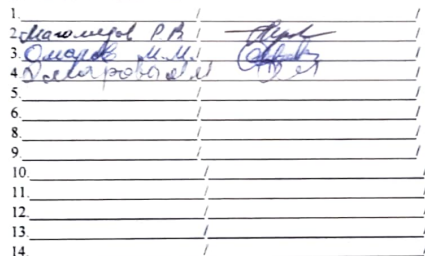 1. / /
2. Магомедов Р.В / /
3. Омаров М.М. / /
4. /
5. / /
6. / /
7. / /
8. / /
9. / /
10. / /
11. / /
12. / /
13. / /
14. / /